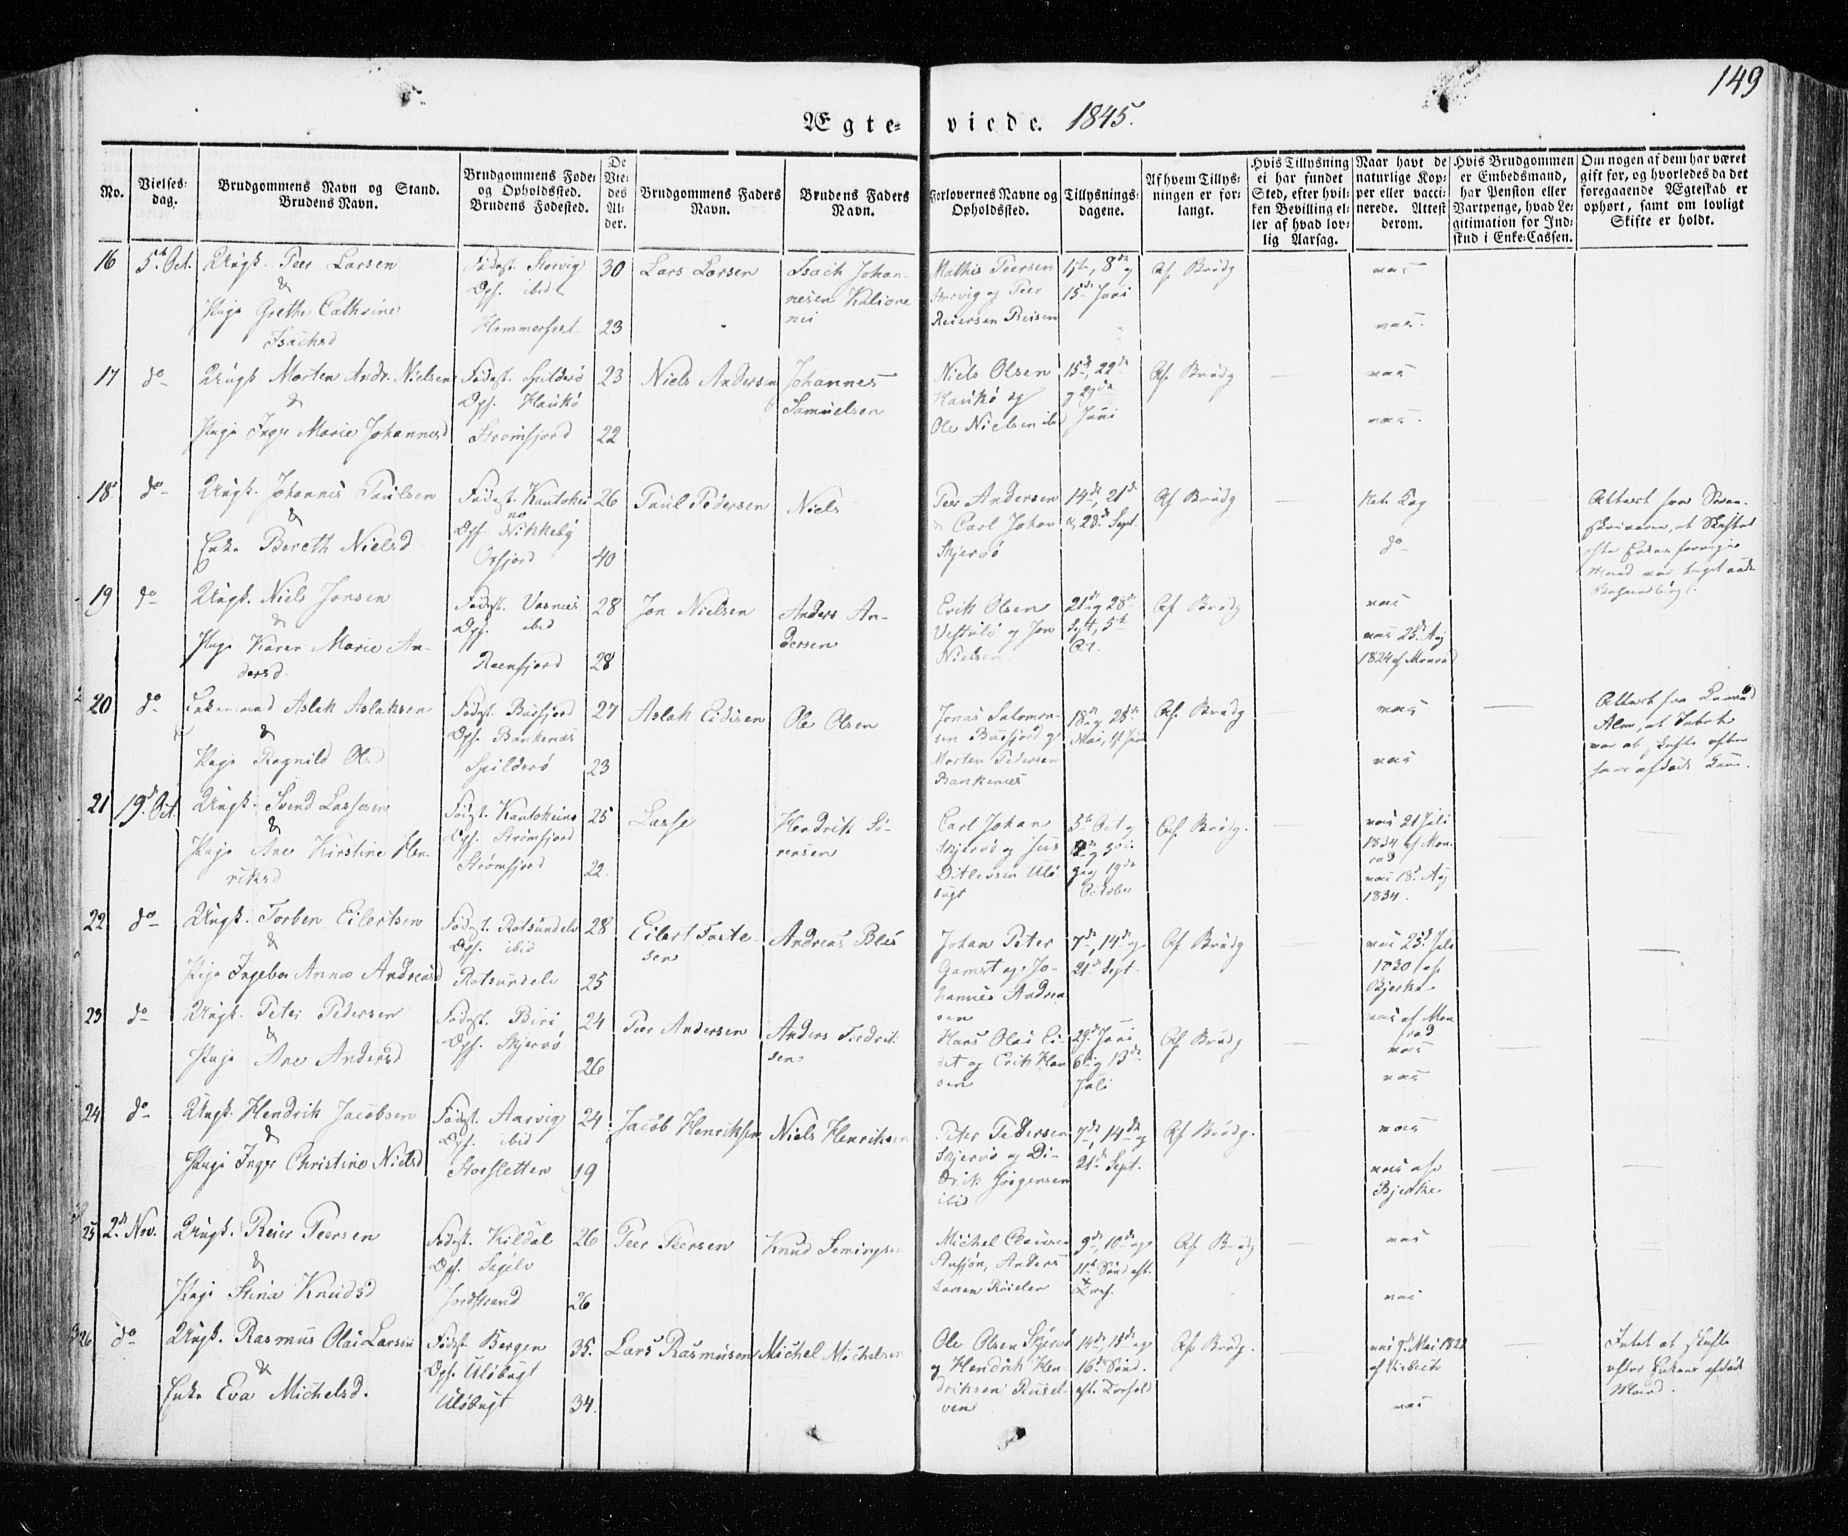 149
Ægte- viede. 1845.
No.
Vielses-
dag.
Brudgommens Navn og Stand.
Brudens Navn.
Brudgommens Føde-
og Opholdssted.
Brudens Fødested.
De
Vie-
des
Al-
der.
Brudgommens Faders
Navn.
Brudens Faders
Navn.
Forlovernes Navne og
Opholdssted.
Tillysnings-
dagene.
Af hvem Tillys-
ningen er for-
langt.
Hvis Tillysning
ei har fundet
Sted, efter hvil-
ken Bevilling el-
ler af hvad lov-
lig Aarsag.
Naar havt de
naturlige Kop-
per eller vacci-
nerede. Attest
derom.
Hvis Brudgommen
er Embedsmand,
har Pension eller
Vartpenge, hvad Le-
gitimation for Ind-
skud i Enke-Cassen.
Om nogen af dem har været
gift før, og hvorledes da det
foregaaende Ægteskab er
ophørt, samt om lovligt
Skifte er holdt.
16 5te Oct. Ungk. Peer Larsen
&
Pige Grethe Cathrine
Isachsd
Fødest. Storvig
Opf. ibid
Hammerfest
30
23
Lars Larsen
Isach Johan-
nesen
Mathis Peersen
Storvig og Peer
Reiersen Reisen
1ste, 8de og
15de Juni
Af Brudg
vac
vac
17 do Ungk. Morten Andr. Nielsen
&
Pige Inger Marie Johannesd
Fødest. Spilderø
Opf. Haukø
Strømfjord
23
22
Niels Andersen
Johannes
Samuelsen
Niels Olsen
Haukø og
Ole Nielsen ibd
15de, 22de
og 29de
Juni
Af Brudg
vac
vac
18 do Ungk. Johannes Paulsen
&
Enke Bereth Nielsd
Fødest. Kautokei
no
Opf. Nikkeby
Oxfjord
26
40
Paul Pedersen
Niels
Peer Andersen
& Carl Johan
Skjervø
14de, 21de
& 28de Sept.
Af Brudg
Nat. Kop
do
Attest fra Soren-
skriveren, at Skiftet
efter Enkens forrige
Mand var taget under
Behandling.
19 do Ungk. Niels Jonsen
&
Pige Karen Marie An-
dersd
Fødest. Vasnæs
Opf. ibid
Reenfjord
28
28
Jon Nielsen
Anders An-
dersen
Erik Olsen
og Jon
Nielsen
21de og 28de
Sept, 5te
Oct.
Af Brudg
vac
vac 25de Aug
1824 af Monrad
20 do Enkemand Aslak Aslaksen
&
Pige Ragnild Olsd
Fødest. Burfjord
Opf. Bankenæs
Spilderø
27
23
Aslak Eidisen
Ole Olsen
Jonas Salomon-
sen Burfjord og
Morten Pedersen
Bankenæs
18de og 25de
Mai, 1ste Juni
Af Brudg
vac
vac
Attest fra
at Intet
var at skifte efter
hans afdøde Kone.
21 19de Oct. Ungk. Svend Lassesen
&
Pige Ane Kirstine Hen-
riksd
Fødest. Kautokeino
Opf. Strømfjord
Strømfjord
25
22
Lasse
Hendrik Sø-
rensen
Carl Johan
Skjervø og Jens
Ditlevsen Ulø-
bugt
5te Oct og
og 19de
October
Af Brudg.
vac 21 Juli
1834 af Mon-
rad
vac 18de Aug
1834.
22 do Ungk. Torben Eilertsen
&
Pige Ingebor Anna Andreasd
Fødest. Rotsundelv
Opf. ibid
Rotsundelv
28
25
Eilert Torbe-
sen
Andreas Blas
Johan Peter
Gamst og Jo-
hannes Andrea
sen
7de, 14de og
21de Sept.
Af Brudg
vac 23de Juli
1830 af
Bjerke
23 do Ungk. Peter Pedersen
&
Pige Ane Andersd
Fødest. Biri
Opf. Skjervø
24
26
Peer Andersen
Anders Fredrik-
sen
Hans Olai Ei-
det og Erik Han
sen
29de Juni
6te og 13de
Juli
Af Brudg
vac af Mon
rad
vac
vac
24 do Ungk. Hendrik Jacobsen
&
Pige Inger Christine Nielsd
Fødest. Aarvig
Opf. ibid
Storsletten
24
19
Jacob Henriksen
Niels Henriksen
Peter Pedersen
Skjervø og Di-
drik Jörgensen
ibid
7de, 14de og
21de Sept.
Af Brudg.
vac
vac af
Bjerke
25 2de Nov. Ungk. Reier Peersen
&
Pige Stina Knudsd
Fødest. Kildal
Opf. Sagelv
Jordstrand
26
26
Peer Peersen
Knud Semingsen
Michel Clausen
Anders
Larsen
9de, 10de og
11te Sønd. eft.
Tref.
Af Brudg
vac
vac
26 do Ungk. Rasmus Olai Larsen
&
Enke Eva Michelsd.
Fødest. Bergen
Opf. Uløbugt
Uløbugt
35.
34.
Lars Rasmusen
Michel Michelsen
Ole Olsen Skjervø
og Hendrik Hen
driksen Rusel-
ven
14de, 15de og
16de Sønd.
eft. Trefold
Af Brudg.
vac 9de Mai 1822
af
vac
Intet at skifte
efter Enkens afdøde
Mand.